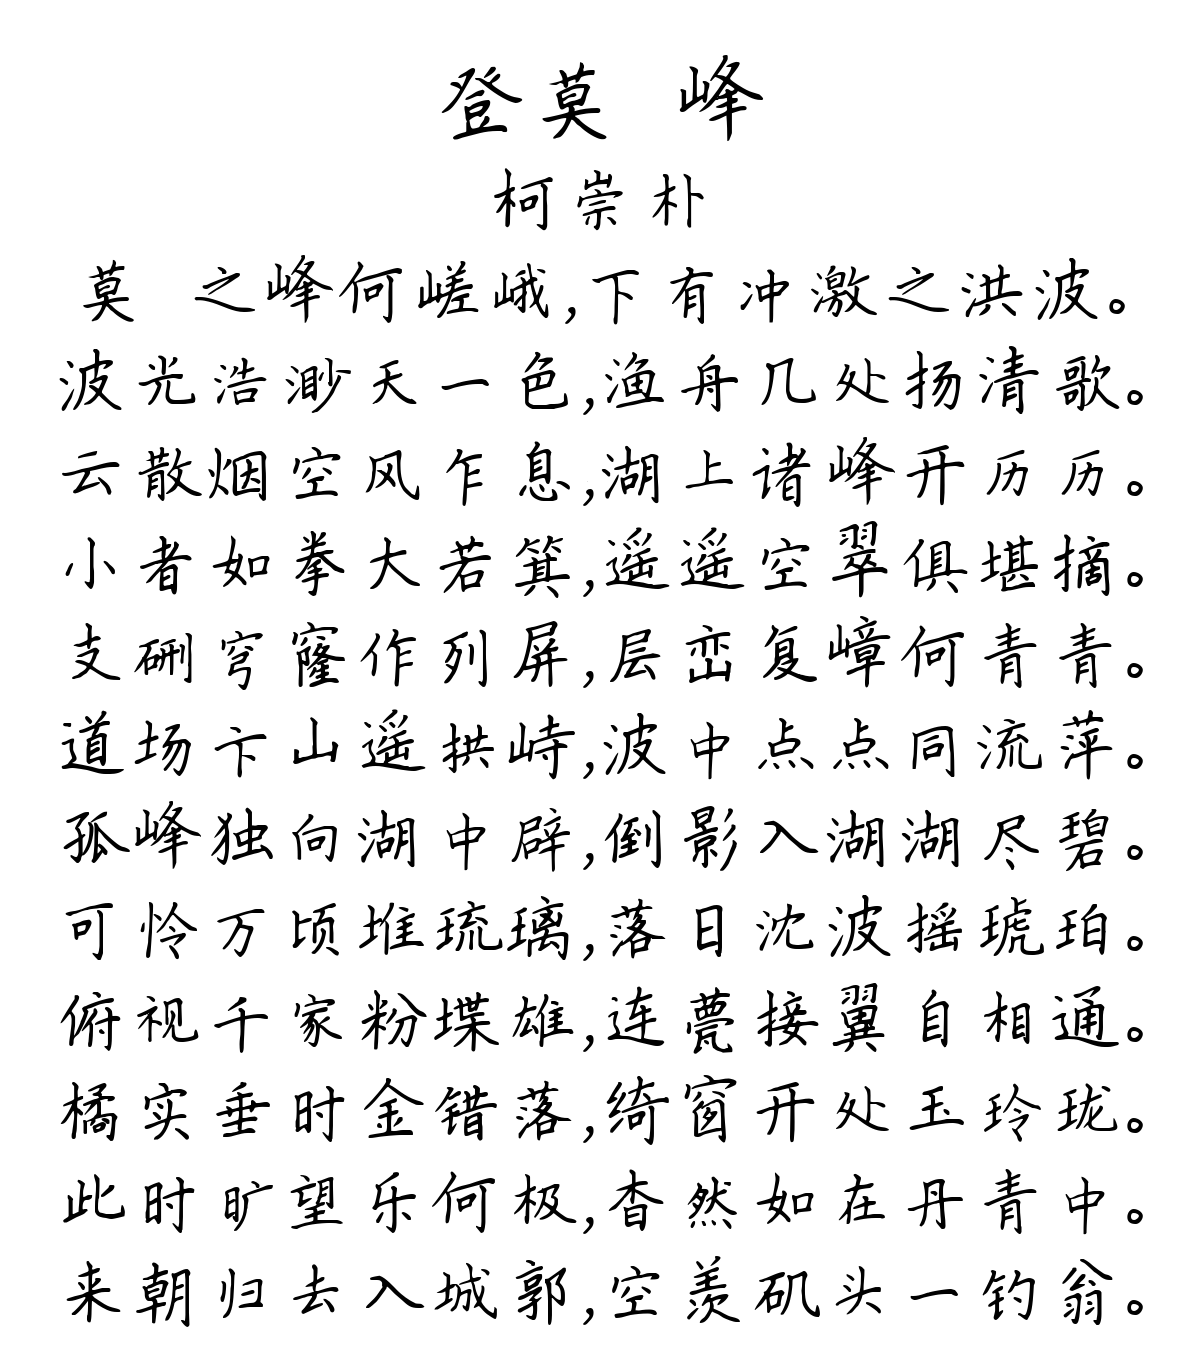 登莫 峰
柯崇朴
莫 之峰何嵯峨,下有冲激之洪波。
波光浩渺天一色,渔舟几处扬清歌。
云散烟空风乍息,湖上诸峰开历历。
小者如拳大若箕,遥遥空翠俱堪摘。
支硎穹窿作列屏,层峦复嶂何青青。
道场卞山遥拱峙,波中点点同流萍。
孤峰独向湖中辟,倒影入湖湖尽碧。
可怜万顷堆琉璃,落日沈波摇琥珀。
俯视千家粉堞雄,连甍接翼自相通。
橘实垂时金错落,绮窗开处玉玲珑。
此时旷望乐何极,杳然如在丹青中。
来朝归去入城郭,空羡矶头一钓翁。